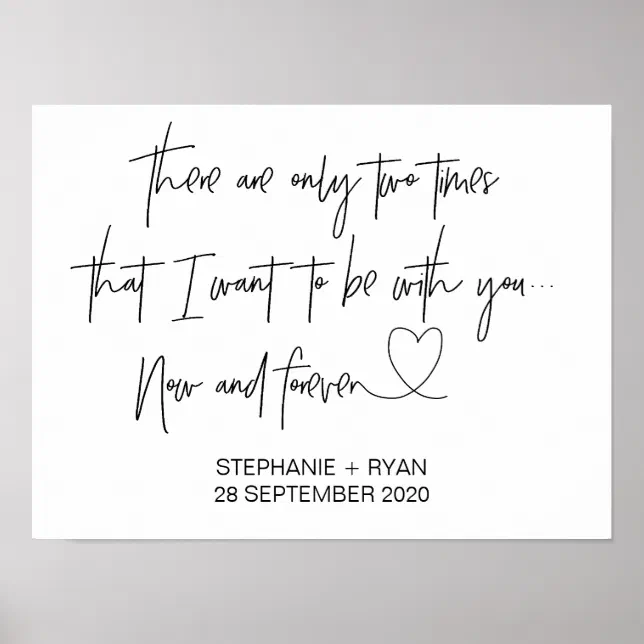 there are only two times
that I want to be with you...
Now and forever
STEPHANIE + RYAN
28 SEPTEMBER 2020